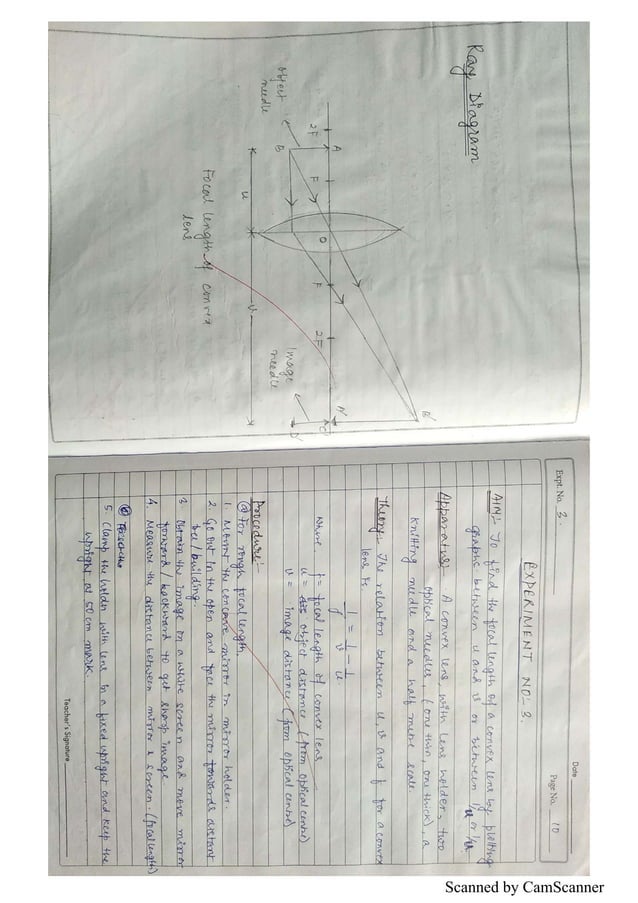 Ray Diagram
Object
needle
2F
A
B
F
O
F
2F
u
v
Image
needle
A'
B'
C'
D'
Focal length of convex
lens
Date
Expt. No. 3.
Page No. 10
EXPERIMENT NO- 3.
AIM:- To find the focal length of a convex lens by plotting
graphs between u and v or between 1/u or 1/v.
Apparatus: A convex lens, with lens holder, two
optical needles, (one thin, one thick), a
knitting needle and a half metre scale.
Theory:- The relation between u, v and f for a convex
lens is.
1/f = 1/v - 1/u
Where f = focal length of convex lens
u = object distance (from optical centre)
v = image distance (from optical centre)
Procedure:-
@ For rough focal length.
1. Mount the concave mirror in mirror holder.
2. Go out in the open and face the mirror towards distant
tree/building.
3. Obtain the image on a white screen and move mirror
forward/backward to get sharp image
4. Measure the distance between mirror & screen. (focal length)
5. Clamp the holder with lens in a fixed upright and keep the
upright at 50 cm mark.
Teacher's Signature
Scanned by CamScanner